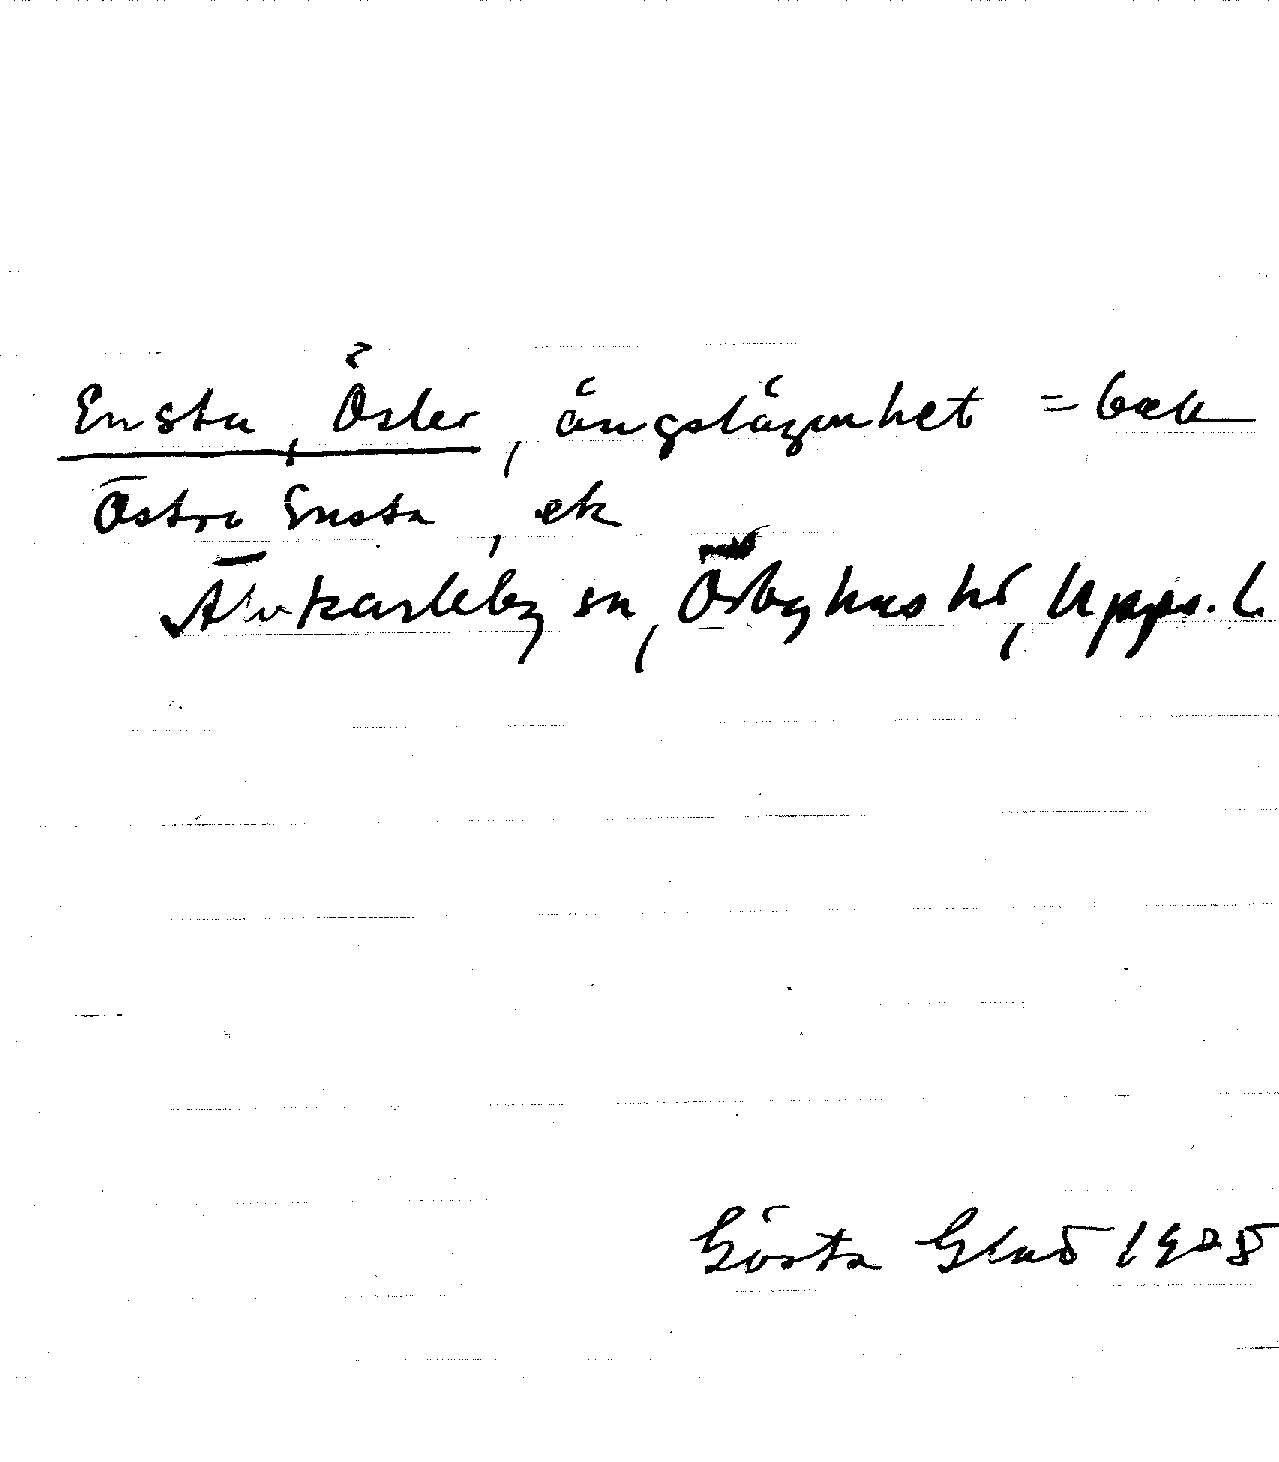 Ensta, Öster, ängslägenhet =
Östra Ensta, ek
Älvkarleby sn, Örbyhus hd, Upps. l.
Gösta Glad 1928